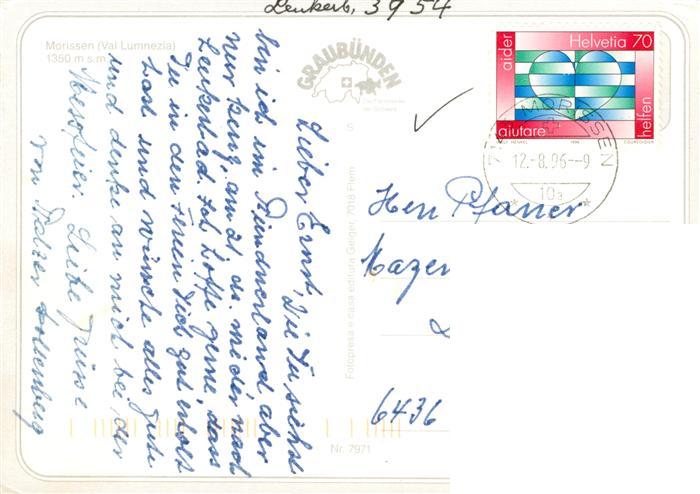 Leukerb, 3954
Morissen (Val Lumnezia)
1350 m s.m.
GRAUBÜNDEN
Die Ferienecke
der Schweiz
S
aider
Helvetia 70
aiutare
helfen
COURVOISIER
MORISSEN
12.-8.96--9
10a
Lieber Ernst, Wie Du siehst
bin ich im Bündnerland aber
nur kurz, am 21. ds. wieder nach
Leukerbad. Ich hoffe gerne, dass
Du in den Ferien Dich gut erholt
hast und wünsche alles Gute
und denke an mich bei der
Messfeier. Liebe Grüsse
von
Fotopresa e casa editura Geiger, 7018 Flem
Nr. 7971
Herr Pfarrer
6436